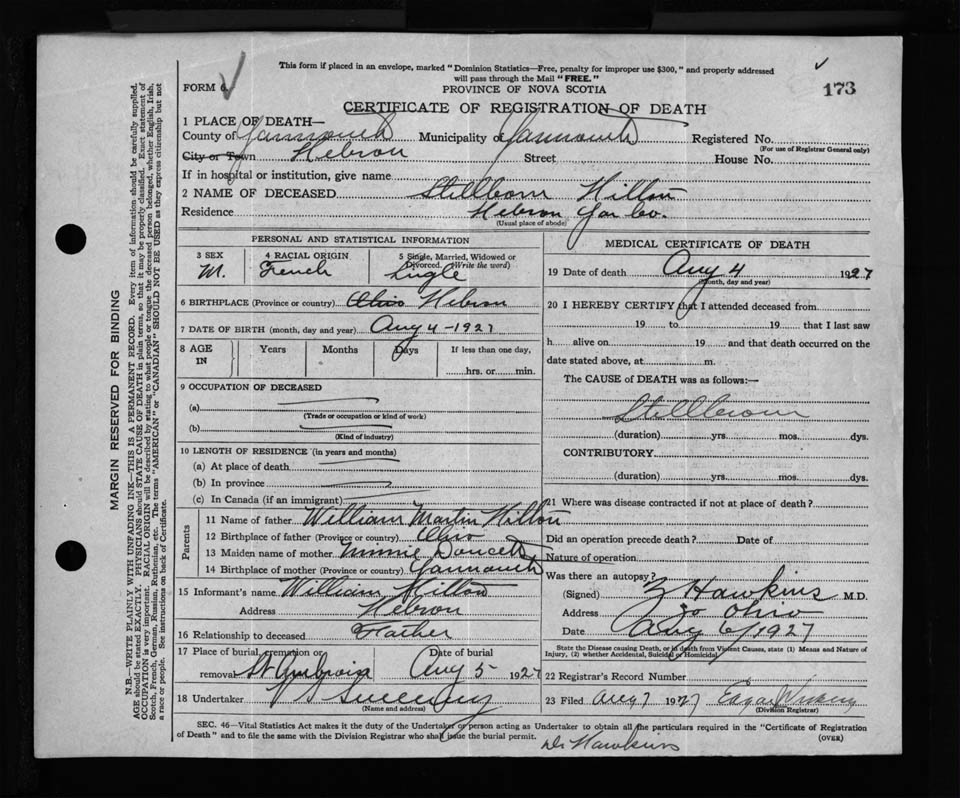 This form if placed in an envelope, marked "Dominion Statistics—Free, penalty for improper use $300," and properly addressed
will pass through the Mail "FREE."
FORM 6
PROVINCE OF NOVA SCOTIA
173
CERTIFICATE OF REGISTRATION OF DEATH
1 PLACE OF DEATH—
County of Yarmouth Municipality of Yarmouth Registered No.
(For use of Registrar General only)
City or Town Hebron Street House No.
If in hospital or institution, give name
2 NAME OF DECEASED Stillborn Hilton
Residence Hebron Yar Co.
(Usual place of abode)
PERSONAL AND STATISTICAL INFORMATION
3 SEX 4 RACIAL ORIGIN 5 Single, Married, Widowed or
Divorced. (Write the word)
M. French Single
6 BIRTHPLACE (Province or country) Ohio Hebron
7 DATE OF BIRTH (month, day and year) Aug 4-1927
8 AGE IN Years Months Days If less than one day,
hrs. or min.
9 OCCUPATION OF DECEASED
(a)
(Trade or occupation or kind of work)
(b)
(Kind of industry)
10 LENGTH OF RESIDENCE (in years and months)
(a) At place of death
(b) In province
(c) In Canada (if an immigrant)
Parents
11 Name of father William Martin Hilton
12 Birthplace of father (Province or country) Ohio
13 Maiden name of mother Minnie Doucett
14 Birthplace of mother (Province or country) Yarmouth
15 Informant's name William Hilton
Address Hebron
16 Relationship to deceased Father
17 Place of burial, cremation or Date of burial
removal St Ambroise Aug 5 1927
18 Undertaker V S Sweeney
(Name and address)
MEDICAL CERTIFICATE OF DEATH
19 Date of death Aug 4 1927
(Month, day and year)
20 I HEREBY CERTIFY that I attended deceased from
19 to 19 that I last saw
h alive on 19 and that death occurred on the
date stated above, at m.
The CAUSE of DEATH was as follows:—
Stillborn
(duration) yrs. mos. dys.
CONTRIBUTORY
(duration) yrs. mos. dys.
21 Where was disease contracted if not at place of death?
Did an operation precede death? Date of
Nature of operation
Was there an autopsy?
(Signed) Z Hawkins M.D.
Address So Ohio
Date Aug 6/1927
State the Disease causing Death, or in death from Violent Causes, state (1) Means and Nature of
Injury, (2) whether Accidental, Suicidal or Homicidal.
22 Registrar's Record Number
23 Filed Aug 7 1927
(Division Registrar)
SEC. 46—Vital Statistics Act makes it the duty of the Undertaker or person acting as Undertaker to obtain all the particulars required in the "Certificate of Registration
of Death" and to file the same with the Division Registrar who shall issue the burial permit.
(OVER)
Dr Hawkins
MARGIN RESERVED FOR BINDING
N.B.—WRITE PLAINLY WITH UNFADING INK—THIS IS A PERMANENT RECORD. Every item of information should be carefully supplied.
AGE should be stated EXACTLY. PHYSICIANS should STATE CAUSE OF DEATH in plain terms, so that it may be properly classified. Exact statement of
OCCUPATION is very important. RACIAL ORIGIN will be described by stating to what people or tongue the deceased person belonged, whether English, Irish,
Scotch, French, German, Russian, Ruthenian, etc. The terms "AMERICAN" or "CANADIAN" SHOULD NOT BE USED as they express citizenship but not
a race or people. See instructions on back of Certificate.